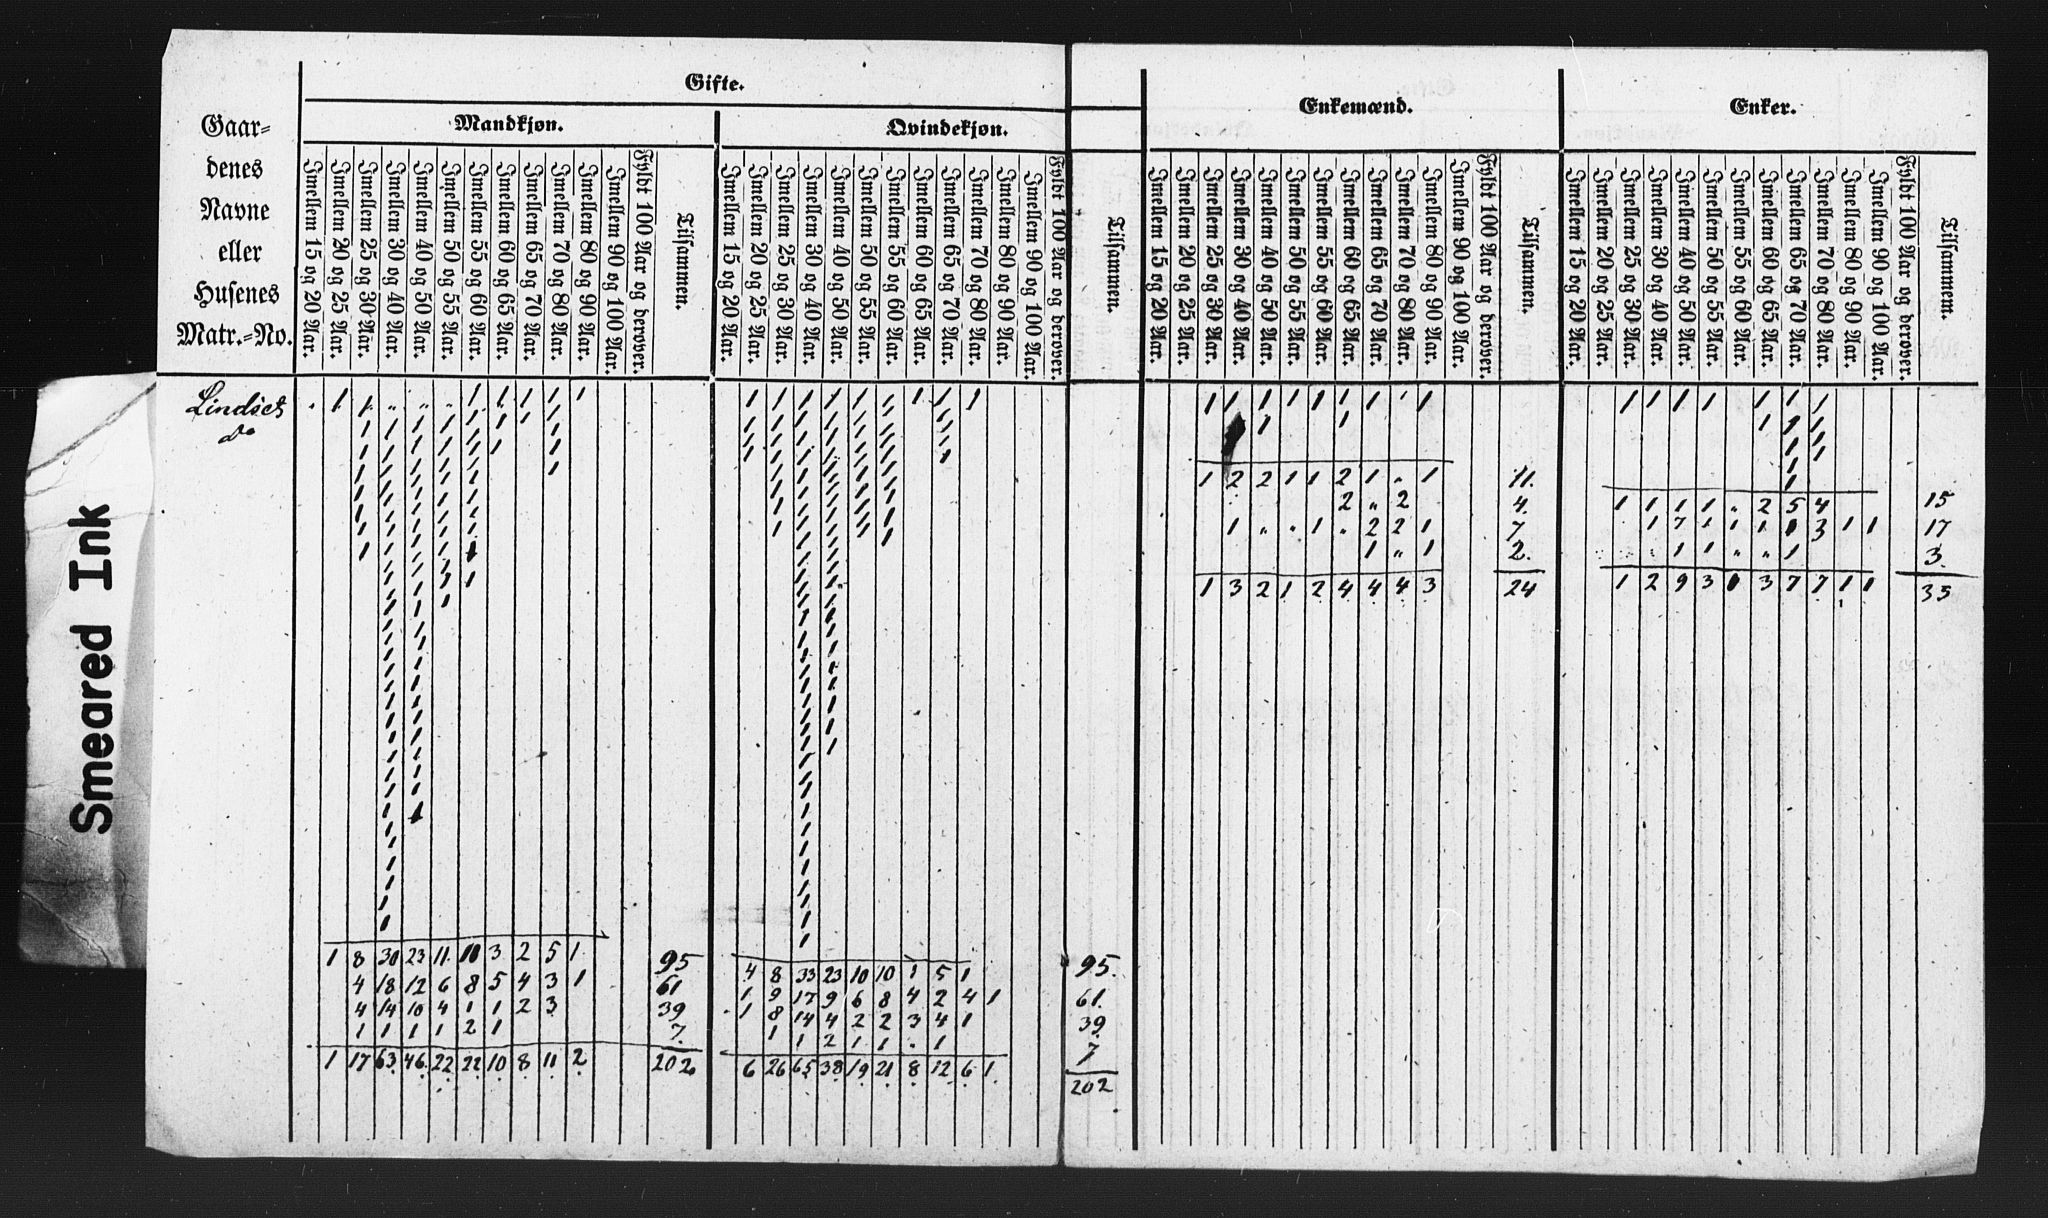 Gifte.
Enkemænd.
Enker.
Mandkjøn.
Qvindekjøn.
Gaar-
denes
Navne
eller
Husenes
Matr.-No.
Imellem 15 og 20 Aar.
Imellem 20 og 25 Aar.
Imellem 25 og 30 Aar.
Imellem 30 og 40 Aar.
Imellem 40 og 50 Aar.
Imellem 50 og 55 Aar.
Imellem 55 og 60 Aar.
Imellem 60 og 65 Aar.
Imellem 65 og 70 Aar.
Imellem 70 og 80 Aar.
Imellem 80 og 90 Aar.
Imellem 90 og 100 Aar.
Fyldt 100 Aar og derover.
Tilsammen.
Imellem 15 og 20 Aar.
Imellem 20 og 25 Aar.
Imellem 25 og 30 Aar.
Imellem 30 og 40 Aar.
Imellem 40 og 50 Aar.
Imellem 50 og 55 Aar.
Imellem 55 og 60 Aar.
Imellem 60 og 65 Aar.
Imellem 65 og 70 Aar.
Imellem 70 og 80 Aar.
Imellem 80 og 90 Aar.
Imellem 90 og 100 Aar.
Fyldt 100 Aar og derover.
Tilsammen.
Imellem 15 og 20 Aar.
Imellem 20 og 25 Aar.
Imellem 25 og 30 Aar.
Imellem 30 og 40 Aar.
Imellem 40 og 50 Aar.
Imellem 50 og 55 Aar.
Imellem 55 og 60 Aar.
Imellem 60 og 65 Aar.
Imellem 65 og 70 Aar.
Imellem 70 og 80 Aar.
Imellem 80 og 90 Aar.
Imellem 90 og 100 Aar.
Fyldt 100 Aar og derover.
Tilsammen.
Imellem 15 og 20 Aar.
Imellem 20 og 25 Aar.
Imellem 25 og 30 Aar.
Imellem 30 og 40 Aar.
Imellem 40 og 50 Aar.
Imellem 50 og 55 Aar.
Imellem 55 og 60 Aar.
Imellem 60 og 65 Aar.
Imellem 65 og 70 Aar.
Imellem 70 og 80 Aar.
Imellem 80 og 90 Aar.
Imellem 90 og 100 Aar.
Fyldt 100 Aar og derover.
Tilsammen.
Lindset
do
Smeared Ink
1 8 30 23 11 10 3 2 5 1 95
4 18 12 6 8 5 4 3 1 61
4 14 10 4 1 1 2 3 39
1 1 1 1 2 1 7.
1 17 63 46 22 22 10 8 11 2 202
4 8 33 23 10 10 1 5 1 95.
1 9 17 9 6 8 4 2 4 1 61.
1 8 14 4 2 2 3 4 1 39
1 1 2 1 1 " 1 7
6 26 65 38 19 21 8 12 6 1 202
1 2 2 1 1 2 1 " 1 11.
2 " 2 4.
1 " " 1 " 2 2 1 7
1 " 1 2.
1 3 2 1 2 4 4 4 3 24
1 1 1 1 " 2 5 4 15
1 7 1 1 1 1 3 1 1 17
1 1 " " 1 3.
1 2 9 3 1 3 7 7 1 1 35